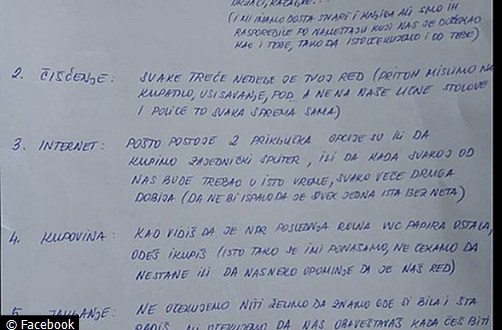 DRŽAČI, KAZALJKE...
(I MI IMAMO DOSTA STVARI I KNJIGA ALI SMO IH
RASPOREDILE PO NAMEŠTAJU KOJI NAS JE DOČEKAO
KAO I TEBE, TAKO DA ISTO OČEKUJEMO I OD TEBE)
2. ČIŠĆENJE: SVAKE TREĆE NEDELJE JE TVOJ RED (PRITOM MISLIMO NA
KUPATILO, USISAVANJE, POD, A NE NA NAŠE LIČNE STOLOVE
I POLICE TO SVAKA SPREMA SAMA)
3. INTERNET: POŠTO POSTOJE 2 PRIKLJUČKA OPCIJE SU ILI DA
KUPIMO ZAJEDNIČKI SPLITER, ILI DA KADA SVAKOJ OD
NAS BUDE TREBAO U ISTO VREME, SVAKO VEČE DRUGA
DOBIJA (DA NE BI ISPALO DA JE UVEK JEDNA ISTA BEZ NETA)
4. KUPOVINA: KAD VIDIŠ DA JE NPR POSLEDNJA ROLNA WC PAPIRA OSTALA,
ODEŠ I KUPIŠ (ISTO TAKO SE I MI PONAŠAMO, NE ČEKAMO DA
NESTANE ILI DA NAS NEKO OPOMINJE DA JE NAŠ RED)
5. JAVLJANJE: NE OČEKUJEMO NITI ŽELIMO DA ZNAMO GDE SI BILA I ŠTA
RADIŠ, ALI OČEKUJEMO DA NAS OBAVEŠTAVAŠ KADA ĆEŠ BITI
© Facebook